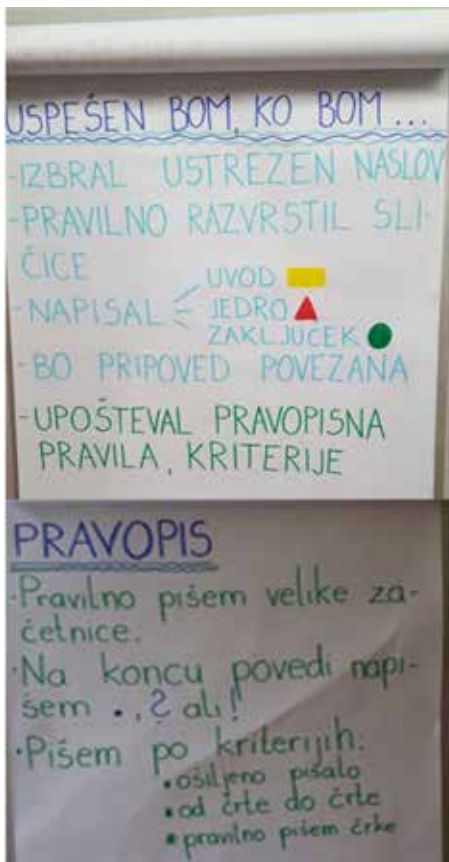 USPEŠEN BOM, KO BOM...
-IZBRAL USTREZEN NASLOV
-PRAVILNO RAZVRSTIL SLI-
ČICE
-NAPISAL UVOD
JEDRO
ZAKLJUČEK
-BO PRIPOVED POVEZANA
-UPOŠTEVAL PRAVOPISNA
PRAVILA, KRITERIJE
PRAVOPIS
•Pravilno pišem velike za-
četnice.
•Na koncu povedi napi-
šem ., ? ali !
•Pišem po kriterijih:
•ošiljeno pisalo
•od črte do črte
•pravilno pišem črke